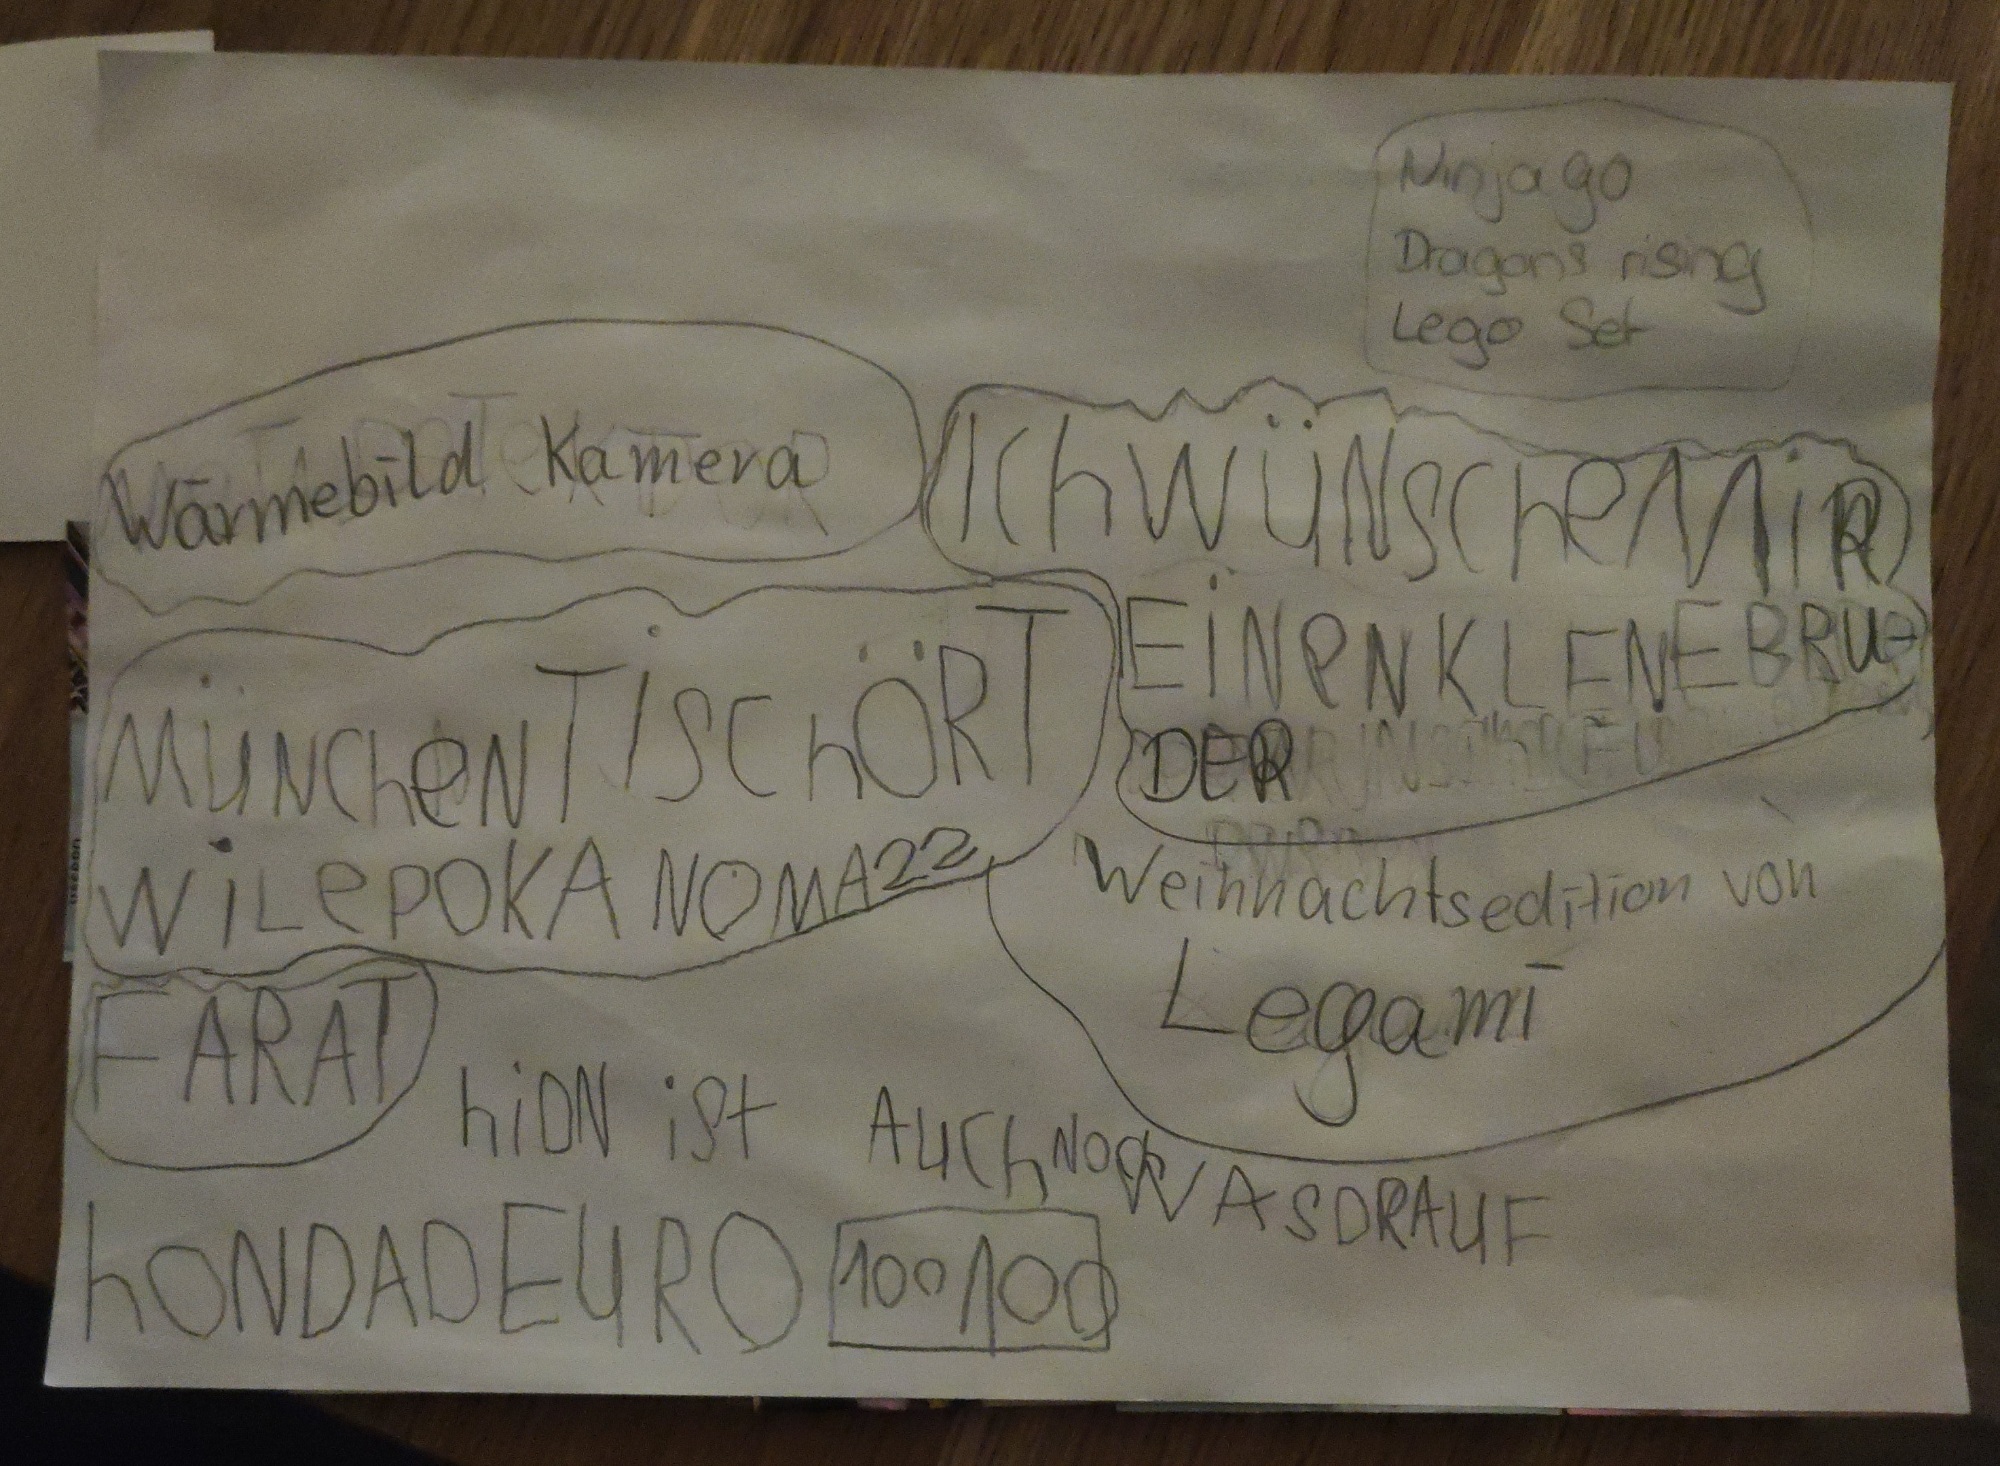 Ninjago
Dragons rising
Lego Set
Wärmebild Kamera
ICh WÜNSCheMiR
EiNeN KLENE BRU-
DER
MÜNCheN TiSChÖRT
WiLePOKA NOMA22
Weihnachtsedition von
Legami
FARAT
hiDN ist AUCh NOCh WASDRAUF
hONDADEURO 100100